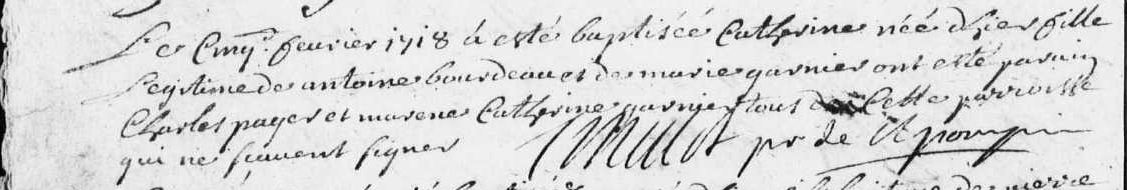 Le Cinq.e feuvrier 1718 à esté baptiséé Catherine néé d'hier fille
Legitime de antoine bourdeau et de marie garnier ont esté parain
Charles pager et marene Catherine garnier tous de Cette parroisse
qui ne sçauent signer Millot pr de St pompin